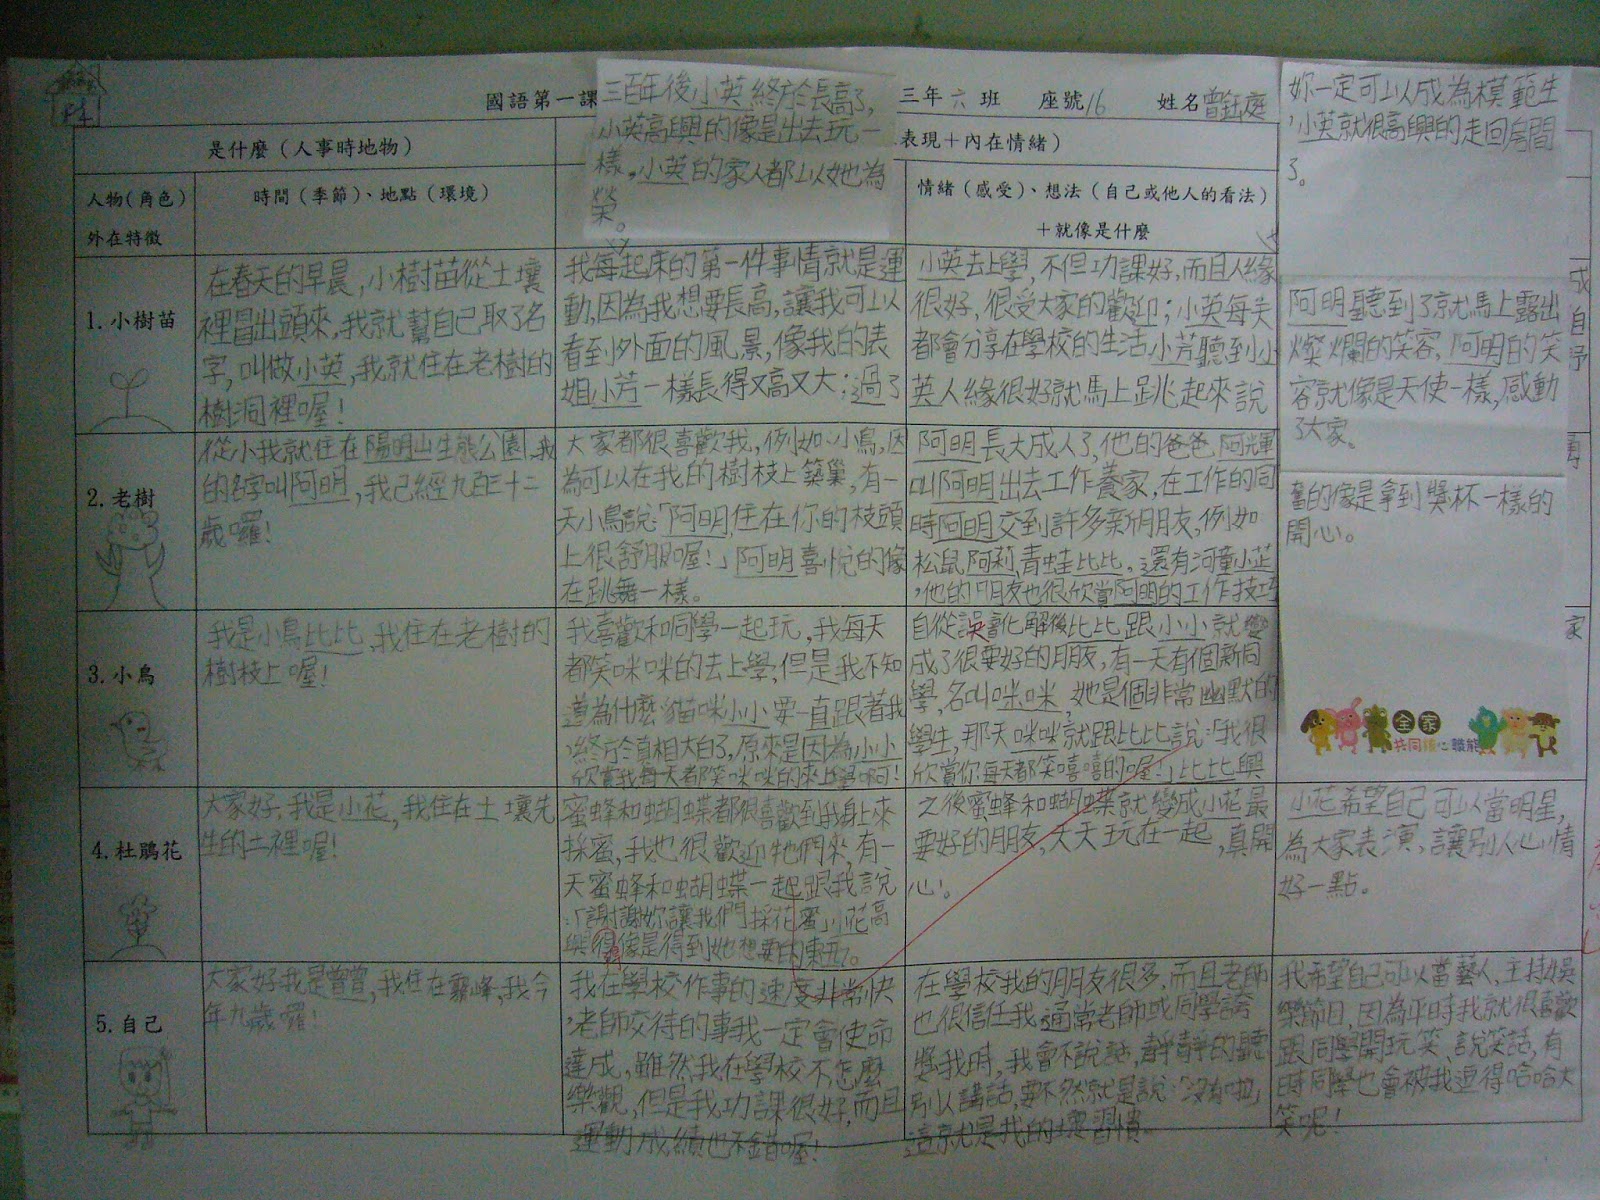 P1
國語第一課
三年六班 座號16 姓名曾鈺庭
三百年後小英終於長高了,
小英高興的像是出去玩一
樣。小英的家人都以她為
榮。
妳一定可以成為模範生
,小英就很高興的走回房間
了。
是什麼(人事時地物)
表現+內在情緒)
人物(角色)
外在特徵
時間(季節)、地點(環境)
情緒(感受)、想法(自己或他人的看法)
+就像是什麼
1.小樹苗
在春天的早晨,小樹苗從土壤
裡冒出頭來,我就幫自己取了名
字,叫做小英,我就住在老樹的
樹洞裡喔!
我每起床的第一件事情就是運
動,因為我想要長高,讓我可以
看到外面的風景,像我的表
姐小芳一樣長得又高又大;過了
小英去上學,不但功課好,而且人緣
很好,很受大家的歡迎;小英每天
都會分享在學校的生活,小芳聽到小
英人緣很好就馬上跳起來說
阿明聽到了就馬上露出
燦爛的笑容,阿明的笑
容就像是天使一樣,感動
了大家。
2.老樹
從小我就住在陽明山生態公園,我
的名字叫阿明,我已經九百三十二
歲囉!
大家都很喜歡我,例如:小鳥,因
為可以在我的樹枝上築巢,有一
天小鳥說:「阿明,住在你的枝頭
上很舒服喔!」阿明喜悅的像
在跳舞一樣。
阿明長大成人了,他的爸爸阿輝
叫阿明出去工作養家,在工作的同
時阿明交到許多新朋友,例如
松鼠阿莉,青蛙比比。還有河童小芷
,他的朋友也很欣賞阿明的工作技巧
奮的像是拿到獎杯一樣的
開心。
3.小鳥
我是小鳥比比,我住在老樹的
樹枝上喔!
我喜歡和同學一起玩,我每天
都笑咪咪的去上學,但是我不知
道為什麼貓咪小小要一直跟著我
,終於真相大白了,原來是因為小小
欣賞我每天都笑咪咪的來上學啊!
自從誤會化解後比比跟小小就變
成了很要好的朋友,有一天有個新同
學,名叫咪咪,她是個非常幽默的
學生,那天咪咪就跟比比說:「我很
欣賞你每天都笑嘻嘻的喔!」比比興
全家
共同核心職能
4.杜鵑花
大家好,我是小花,我住在土壤先
生的土裡喔!
蜜蜂和蝴蝶都很喜歡到我身上來
採蜜,我也很歡迎牠們來,有一
天蜜蜂和蝴蝶一起跟我說
:「謝謝妳讓我們採花蜜」小花高
興得像是得到她想要的東西。
之後蜜蜂和蝴蝶就變成小花最
要好的朋友,天天玩在一起,真開
心!。
小花希望自己可以當明星,
為大家表演,讓別人心情
好一點。
5.自己
大家好我是曾曾,我住在霧峰,我今
年九歲囉!
我在學校作事的速度非常快
,老師交待的事我一定會使命
達成,雖然我在學校不怎麼
樂觀,但是我功課很好,而且
運動成績也不錯喔!
在學校我的朋友很多,而且老師
也很信任我,通常老師或同學誇
獎我時,我會不說話,靜靜的聽
別人講話,要不然就是說:「沒有啦」
這就是我的壞習慣。
我希望自己可以當藝人,主持娛
樂節目,因為平時我就很喜歡
跟同學開玩笑、說笑話,有
時同學也會被我逗得哈哈大
笑呢!